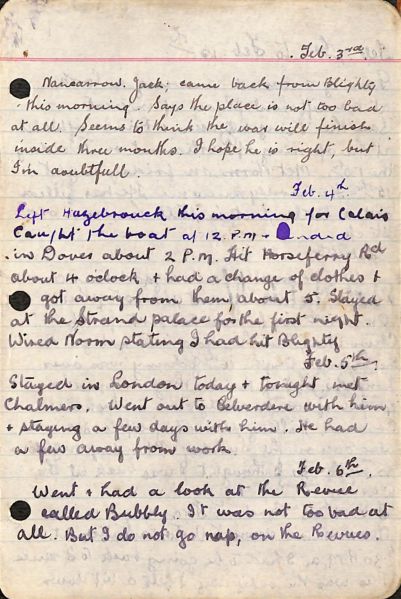 Feb. 3rd.
Nancarrow. Jack; came back from Blighty
this morning. Says the place is not too bad
at all. Seems to think the war will finish
inside three months. I hope he is right, but
I'm doubtfull.
Feb. 4th
Left Hazebrouck this morning for Calais
Caught the boat at 12. P.M. + landed
in Dover about 2 P.M. Hit Horseferry Rd
about 4 oclock + had a change of clothes +
got away from them about 5. Stayed
at the Strand palace for the first night.
Wired Norm stating I had hit Blighty
Feb. 5th.
Stayed in London today + tonight met
Chalmers. Went out to Belverdere with him
+ staying a few days with him. He had
a few away from work.
Feb. 6th.
Went + had a look at the Revue
called Bubbly. It was not too bad at
all. But I do not go nap, on the Revues.